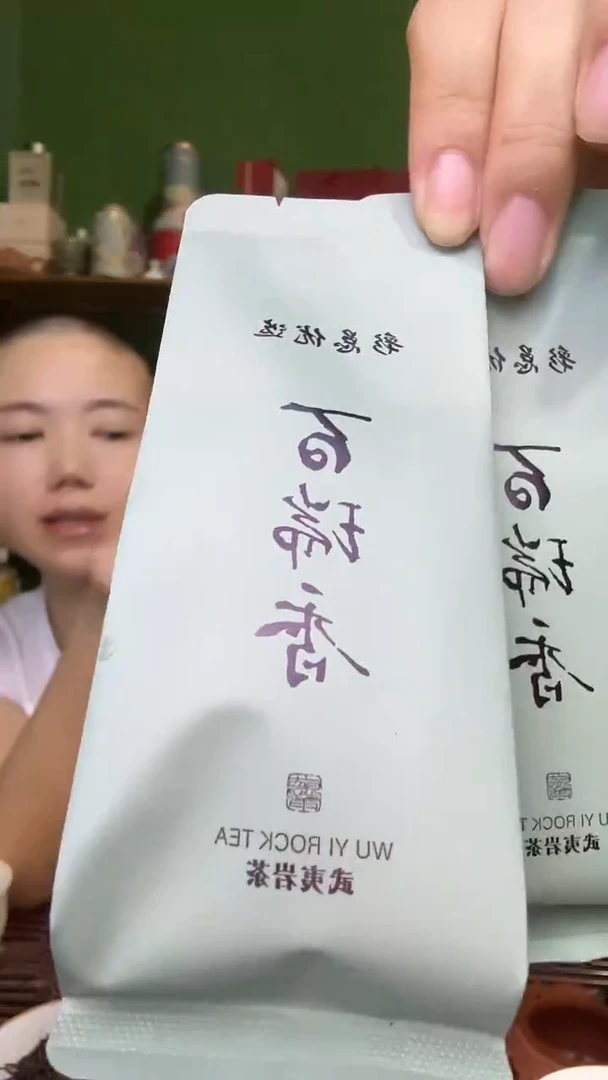 彩恩优选
百瑞香
WU YI ROCK TEA
武夷岩茶
彩恩优
百瑞香
WU YI ROCK T
武夷岩茶